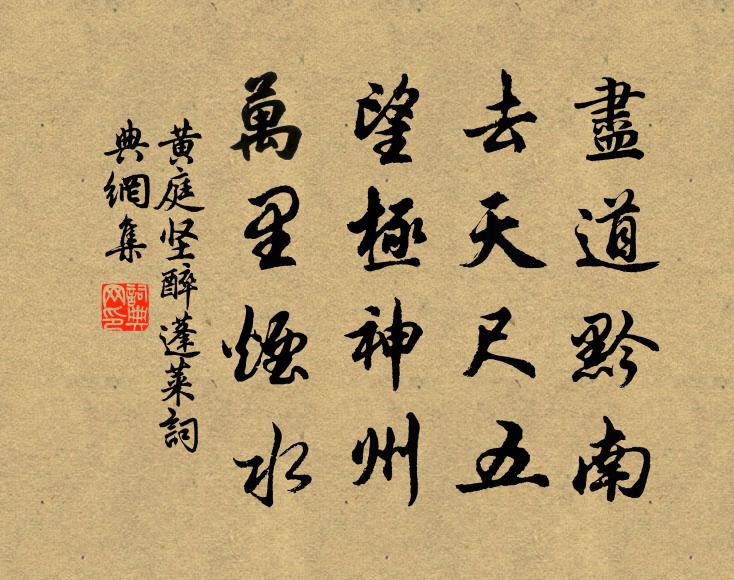 盡道黔南
去天尺五
望極神州
萬里煙水
黄庭坚醉蓬萊詞
典網集
詞典网印